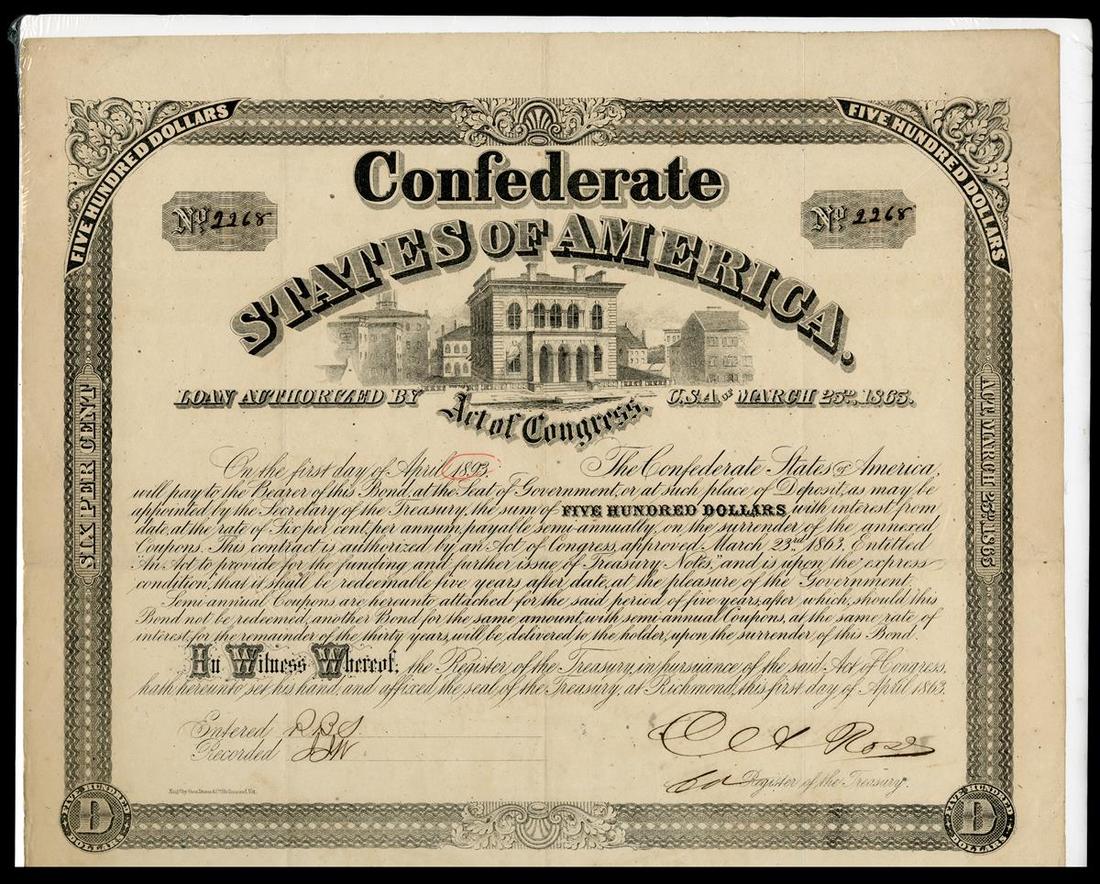 FIVE HUNDRED DOLLARS
FIVE HUNDRED DOLLARS
Confederate
No 2268
No 2268
STATES OF AMERICA.
LOAN AUTHORIZED BY
Act of Congress,
C.S.A. OF MARCH 23D. 1863.
SIX PER CENT
ACT MARCH 23D. 1863
On the first day of April 1893. The Confederate States of America,
will pay to the Bearer of this Bond, at the Seat of Government, or at such place of Deposit, as may be
appointed by the Secretary of the Treasury, the sum of FIVE HUNDRED DOLLARS, with interest from
date, at the rate of Six per cent, per annum, payable semi-annually, on the surrender of the annexed
Coupons. This contract is authorized by an Act of Congress, approved March 23rd 1863, Entitled
An Act to provide for the funding and further issue of Treasury Notes, and is upon the express
condition, that it shall be redeemable five years after date, at the pleasure of the Government.
Semi-annual Coupons are hereunto attached for the said period of five years, after which, should this
Bond not be redeemed, another Bond for the same amount, with semi-annual Coupons, at the same rate of
interest, for the remainder of the thirty years, will be delivered to the holder, upon the surrender of this Bond.
In Witness Whereof, the Register of the Treasury, in pursuance of the said Act of Congress,
hath hereunto set his hand, and affixed, the seal of the Treasury, at Richmond, this first day of April 1863.
Entered
Recorded
C A Rose
Register of the Treasury.
FIVE HUNDRED
D
FIVE HUNDRED
D